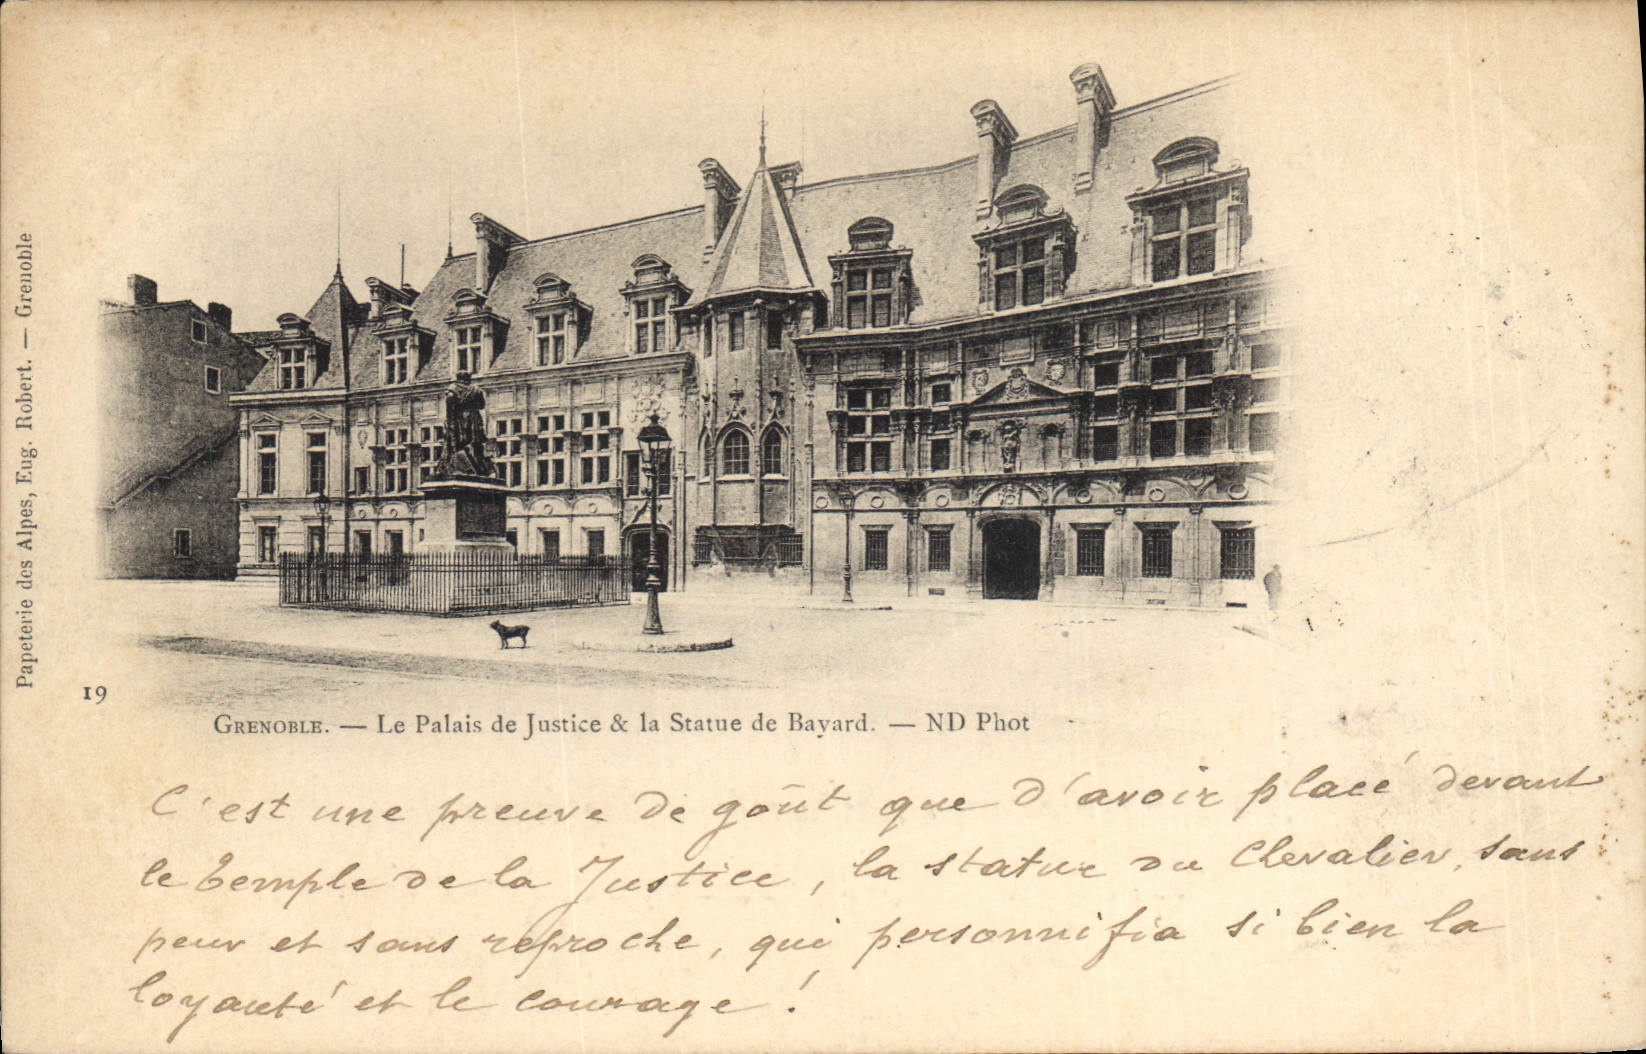 Papeterie des Alpes, Eug. Robert. — Grenoble
19
GRENOBLE. — Le Palais de Justice & la Statue de Bayard. — ND Phot
C'est une preuve de goût que d'avoir placé devant
le temple de la Justice, la statue du Chevalier, sans
peur et sans reproche, qui personnifia si bien la
loyauté et le courage !